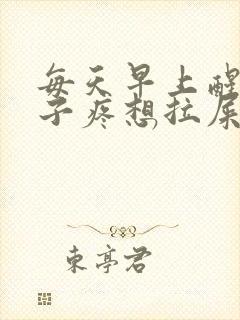 每天早上醒
子疼想拉屎
東亭君